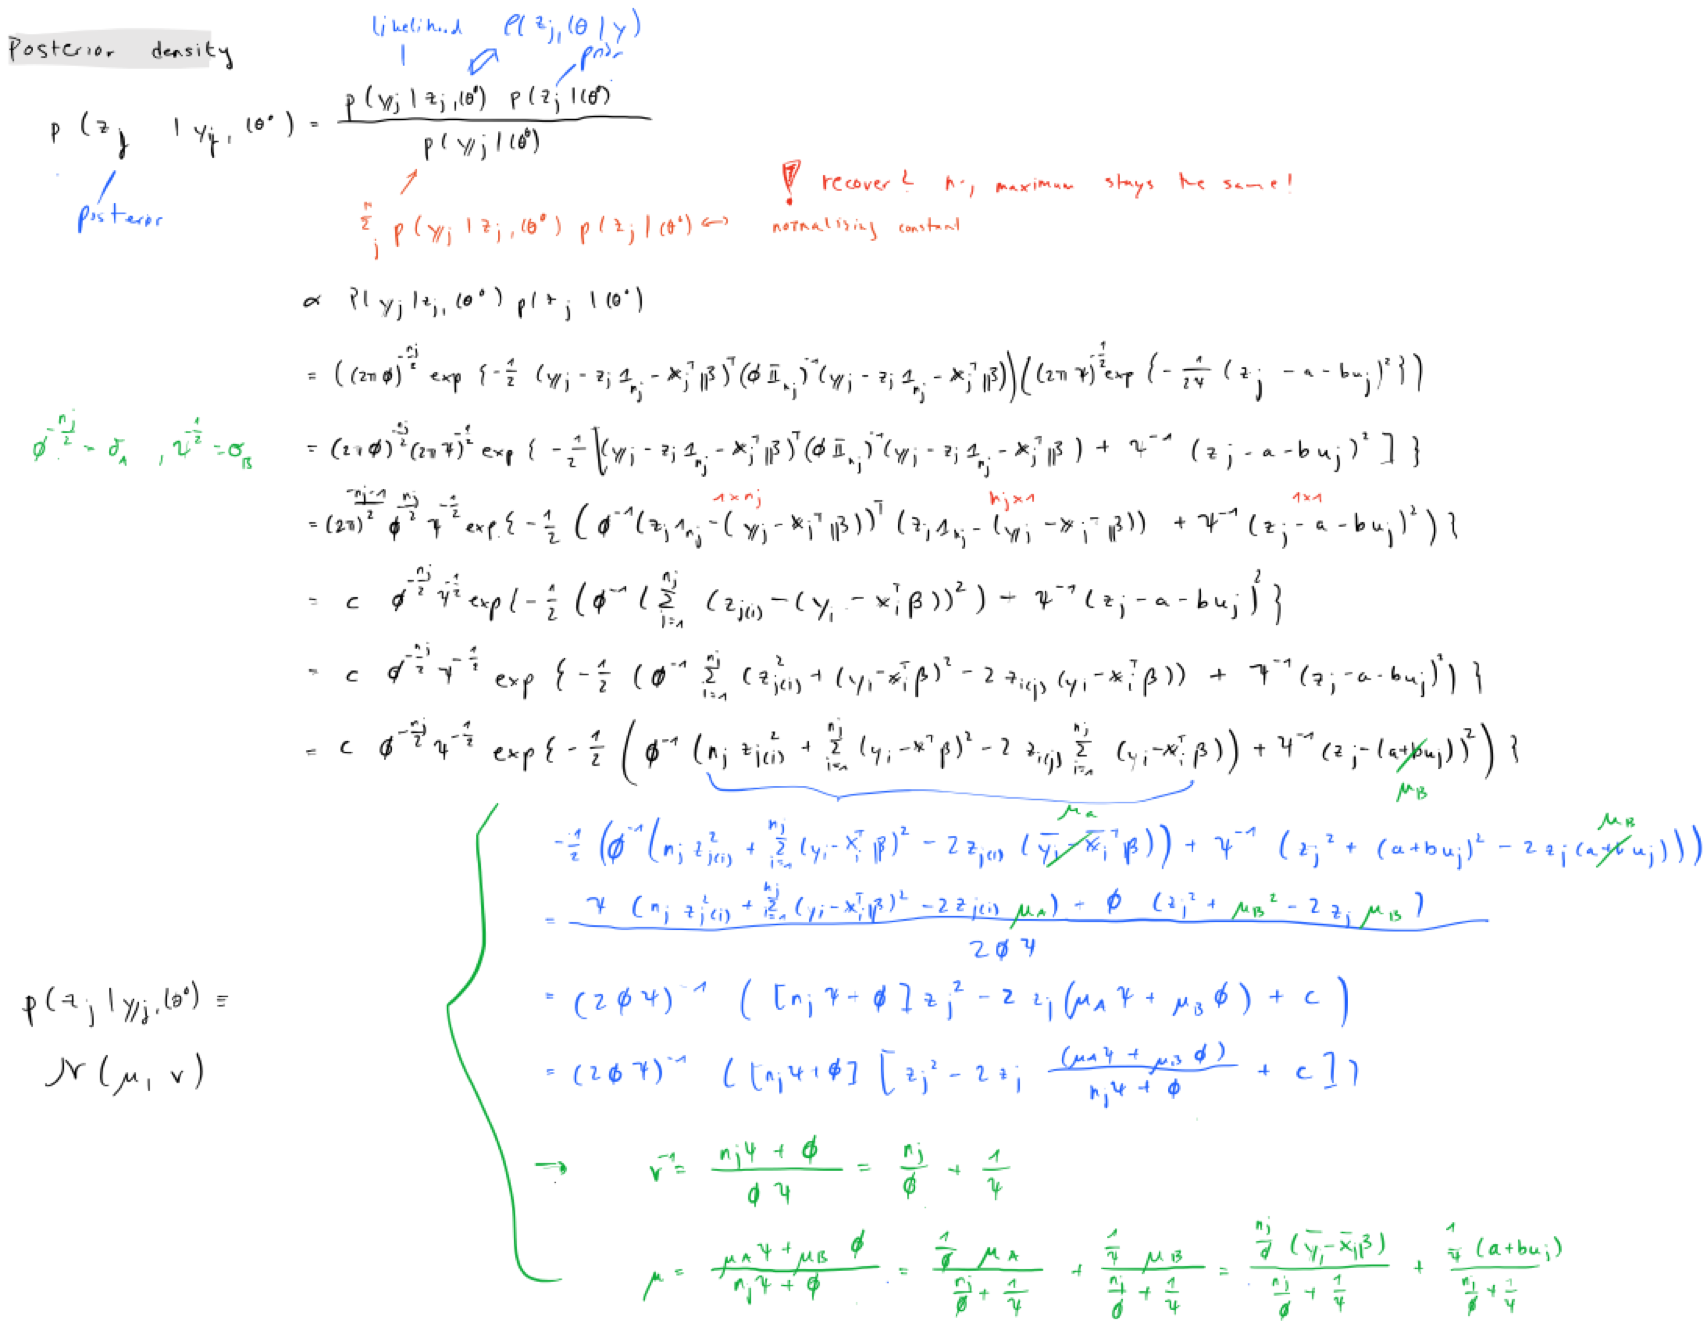 likelihood p(z_j, θ | y)
Posterior density
prior
p(z_j | y_j, θ°) = p(y_j | z_j, θ°) p(z_j | θ°) / p(y_j | θ°)
posterior
! recover? no, maximum stays the same!
Σ_j^n p(y_j | z_j, θ°) p(z_j | θ°) ↔ normalising constant
∝ p(y_j | z_j, θ°) p(z_j | θ°)
= ((2πφ)^{-n_j/2} exp {-1/2 (y_j - z_j 1_{n_j} - x_j^T β)^T (φ I_{n_j})^{-1} (y_j - z_j 1_{n_j} - x_j^T β)) ((2πψ)^{-1/2} exp {-1/2ψ (z_j - a - bu_j)^2})
φ^{-n_j/2} = σ_A , ψ^{-1/2} = σ_B
= (2πφ)^{-n_j/2} (2πψ)^{-1/2} exp { -1/2 [(y_j - z_j 1_{n_j} - x_j^T β)^T (φ I_{n_j})^{-1} (y_j - z_j 1_{n_j} - x_j^T β) + ψ^{-1} (z_j - a - bu_j)^2 ] }
1×n_j n_j×1 1×1
= (2π)^{-n_j-1/2} φ^{-n_j/2} ψ^{-1/2} exp { -1/2 ( φ^{-1} (z_j 1_{n_j} - (y_j - x_j^T β))^T (z_j 1_{n_j} - (y_j - x_j^T β)) + ψ^{-1} (z_j - a - bu_j)^2 ) }
= c φ^{-n_j/2} ψ^{-1/2} exp { -1/2 ( φ^{-1} ( Σ_{i=1}^{n_j} (z_{j(i)} - (y_i - x_i^T β))^2 ) + ψ^{-1} (z_j - a - bu_j)^2 }
= c φ^{-n_j/2} ψ^{-1/2} exp { -1/2 ( φ^{-1} Σ_{i=1}^{n_j} (z_{j(i)}^2 + (y_i - x_i^T β)^2 - 2 z_{i(j)} (y_i - x_i^T β)) + ψ^{-1} (z_j - a - bu_j)^2 ) }
= c φ^{-n_j/2} ψ^{-1/2} exp { -1/2 ( φ^{-1} ( n_j z_{j(i)}^2 + Σ_{i=1}^{n_j} (y_i - x^T β)^2 - 2 z_{i(j)} Σ_{i=1}^{n_j} (y_i - x_i^T β)) + ψ^{-1} (z_j - (a+bu_j))^2 ) }
μ_B
μ_A μ_B
-1/2 ( φ^{-1} ( n_j z_{j(i)}^2 + Σ_{i=1}^{n_j} (y_i - x_i^T β)^2 - 2 z_{j(i)} (ȳ_i - x̄_i^T β)) + ψ^{-1} (z_j^2 + (a+bu_j)^2 - 2 z_j (a+bu_j)))
= ψ (n_j z_{j(i)}^2 + Σ_{i=1}^{n_j} (y_i - x_i^T β)^2 - 2 z_{j(i)} μ_A) + φ (z_j^2 + μ_B^2 - 2 z_j μ_B) / 2φψ
p(z_j | y_j, θ°) ≡
= (2φψ)^{-1} ( [n_j ψ + φ] z_j^2 - 2 z_j (μ_A ψ + μ_B φ) + c )
N(μ, v)
= (2φψ)^{-1} ( [n_j ψ + φ] [ z_j^2 - 2 z_j (μ_A ψ + μ_B φ) / n_j ψ + φ + c ] )
→ v^{-1} = n_j ψ + φ / φψ = n_j/φ + 1/ψ
μ = μ_A ψ + μ_B φ / n_j ψ + φ = 1/φ μ_A / n_j/φ + 1/ψ + 1/ψ μ_B / n_j/φ + 1/ψ = n_j/φ (ȳ_i - x̄_i β) / n_j/φ + 1/ψ + 1/ψ (a+bu_j) / n_j/φ + 1/ψ